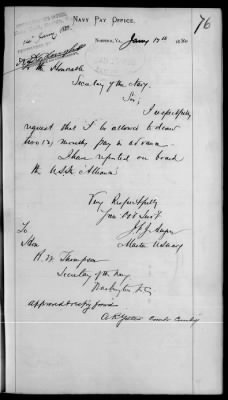 76
NAVY PAY OFFICE,
NORFOLK, VA., Jany 17th 1880
To the Honorable
Secretary of the Navy.
Sir;
I respectfully
request that I be allowed to draw
two (2) months pay in advance.
I have reported on board
the U.S.S. "Alliance"
Very Respectfully
Your Obt Servt
Master U.S. Navy
To
Hon
R. W. Thompson
Secretary of the Navy
Washington D.C.
Approved &